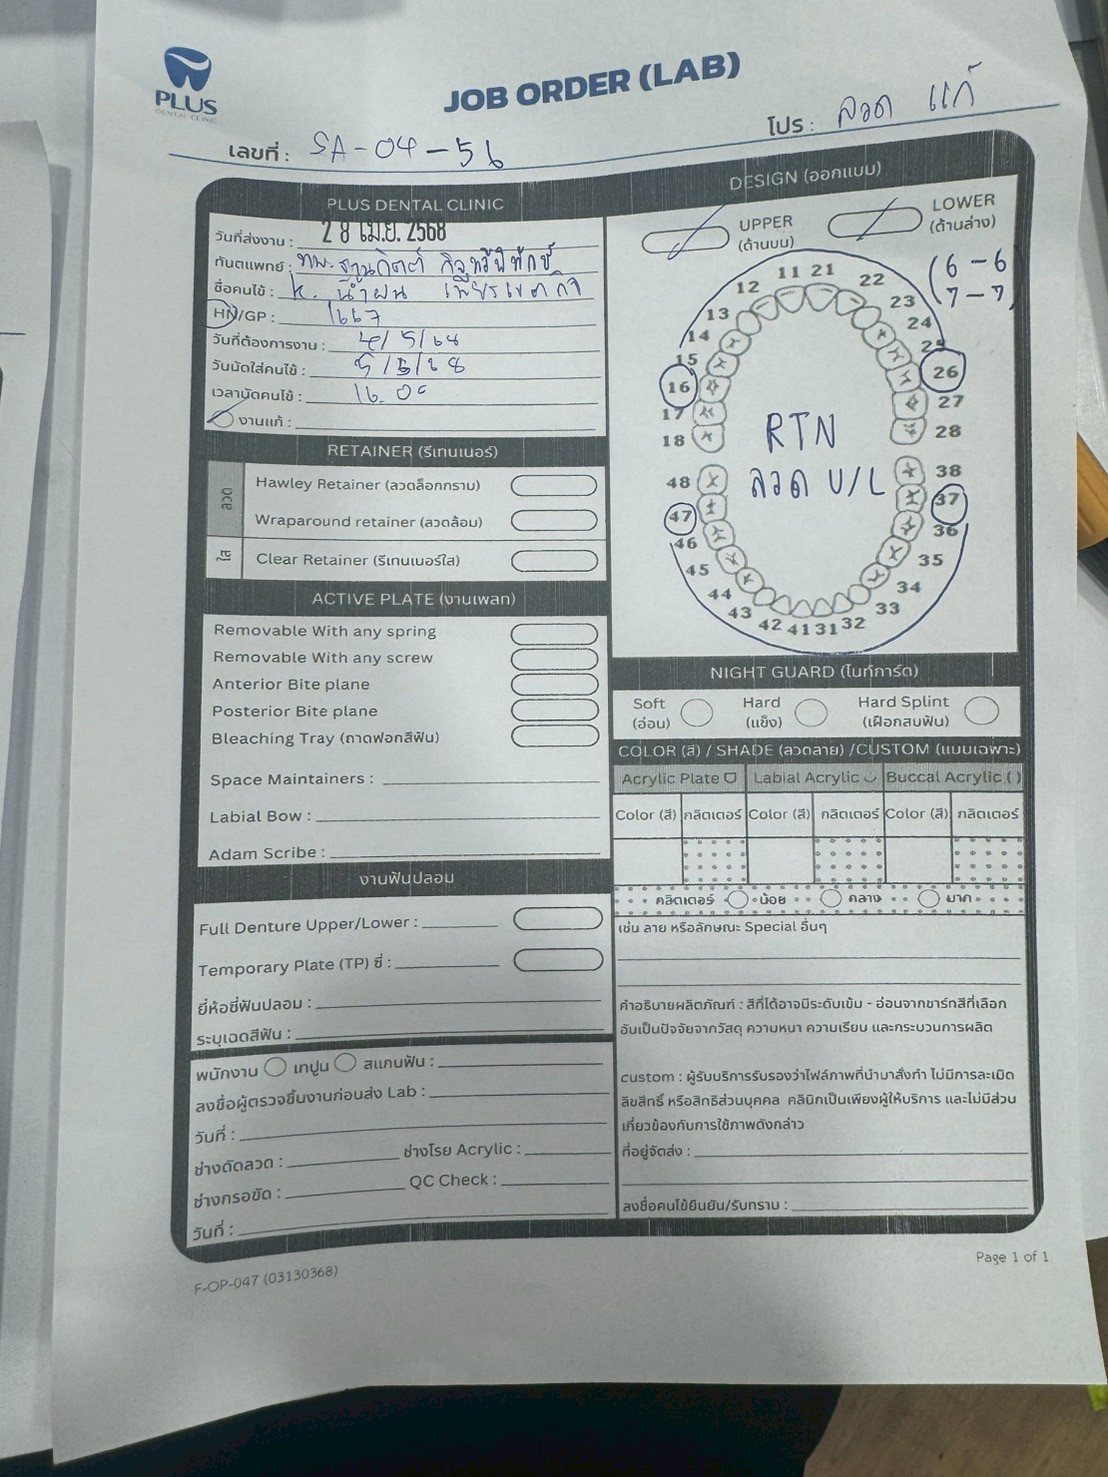 PLUS
DENTAL CLINIC
JOB ORDER (LAB)
โปร : ลวด แก้
เลขที่ : SA-04-56
PLUS DENTAL CLINIC
วันที่ส่งงาน : 28 เม.ย. 2568
ทันตแพทย์ : ทพ.
ชื่อคนไข้ : K. น้ำฝน
HN/GP : 1667
วันที่ต้องการงาน : 4/5/68
วันนัดใส่คนไข้ : 5/5/68
เวลานัดคนไข้ : 16.00
งานแก้ :
RETAINER (รีเทนเนอร์)
ลวด
Hawley Retainer (ลวดล็อกกราม)
Wraparound retainer (ลวดล้อม)
ใส
Clear Retainer (รีเทนเนอร์ใส)
ACTIVE PLATE (งานเพลท)
Removable With any spring
Removable With any screw
Anterior Bite plane
Posterior Bite plane
Bleaching Tray (ถาดฟอกสีฟัน)
Space Maintainers :
Labial Bow :
Adam Scribe :
งานฟันปลอม
Full Denture Upper/Lower :
Temporary Plate (TP) ซี่ :
ยี่ห้อซี่ฟันปลอม :
ระบุเฉดสีฟัน :
พนักงาน เทปูน สแกนฟัน :
ลงชื่อผู้ตรวจชิ้นงานก่อนส่ง Lab :
วันที่ :
ช่างดัดลวด : ช่างโรย Acrylic :
ช่างกรอขัด : QC Check :
วันที่ :
DESIGN (ออกแบบ)
UPPER
(ด้านบน)
LOWER
(ด้านล่าง)
(6-6
7-7)
11 21
12 22
13 23
14 24
15 25
16 26
17 27
18 28
RTN
ลวด U/L
48 38
47 37
46 36
45 35
44 34
43 33
42 41 31 32
NIGHT GUARD (ไนท์การ์ด)
Soft
(อ่อน)
Hard
(แข็ง)
Hard Splint
(เฝือกสบฟัน)
COLOR (สี) / SHADE (ลวดลาย) /CUSTOM (แบบเฉพาะ)
Acrylic Plate Labial Acrylic Buccal Acrylic ( )
Color (สี) กลิตเตอร์ Color (สี) กลิตเตอร์ Color (สี) กลิตเตอร์
กลิตเตอร์ น้อย กลาง มาก
เช่น ลาย หรือลักษณะ Special อื่นๆ
คำอธิบายผลิตภัณฑ์ : สีที่ได้อาจมีระดับเข้ม - อ่อนจากชาร์ทสีที่เลือก
อันเป็นปัจจัยจากวัสดุ ความหนา ความเรียบ และกระบวนการผลิต
custom : ผู้รับบริการรับรองว่าไฟล์ภาพที่นำมาสั่งทำ ไม่มีการละเมิด
ลิขสิทธิ์ หรือสิทธิส่วนบุคคล คลินิกเป็นเพียงผู้ให้บริการ และไม่มีส่วน
เกี่ยวข้องกับการใช้ภาพดังกล่าว
ที่อยู่จัดส่ง :
ลงชื่อคนไข้ยืนยัน/รับทราบ :
F-OP-047 (03130368)
Page 1 of 1